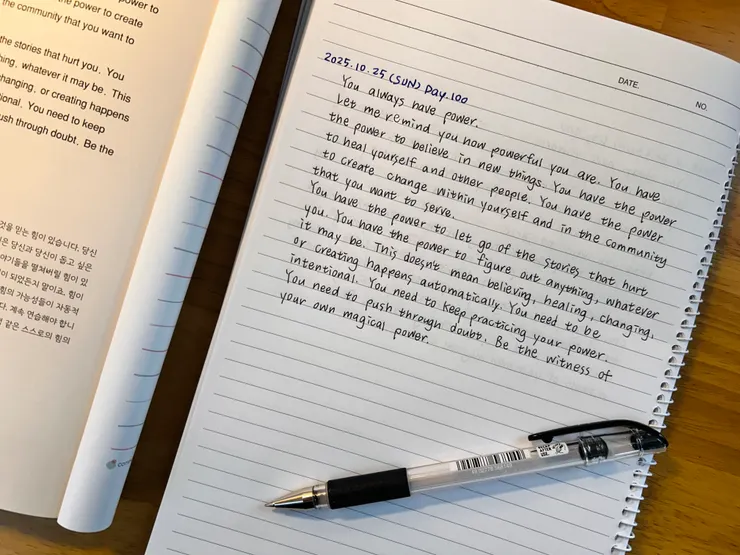 power to
power to create
the community that you want to
the stories that hurt you. You
thing, whatever it may be. This
changing, or creating happens
tional. You need to keep
ush through doubt. Be the
것을 믿는 힘이 있습니다. 당신
은 당신과 당신이 돕고 싶은
야기들을 떨쳐버릴 힘이 있
이 되었든지 말이죠. 힘이
힘의 가능성들이 자동적
다. 계속 연습해야 합니
같은 스스로의 힘의
DATE.
NO.
2025.10.25 (SUN) Day.100
You always have power.
Let me remind you how powerful you are. You have
the power to believe in new things. You have the power
to heal yourself and other people. You have the power
to create change within yourself and in the community
that you want to serve.
You have the power to let go of the stories that hurt
you. You have the power to figure out anything, whatever
it may be. This doesn't mean believing, healing, changing,
or creating happens automatically. You need to be
intentional. You need to keep practicing your power.
You need to push through doubt. Be the witness of
your own magical power.
RECAP
AFTER
USE.